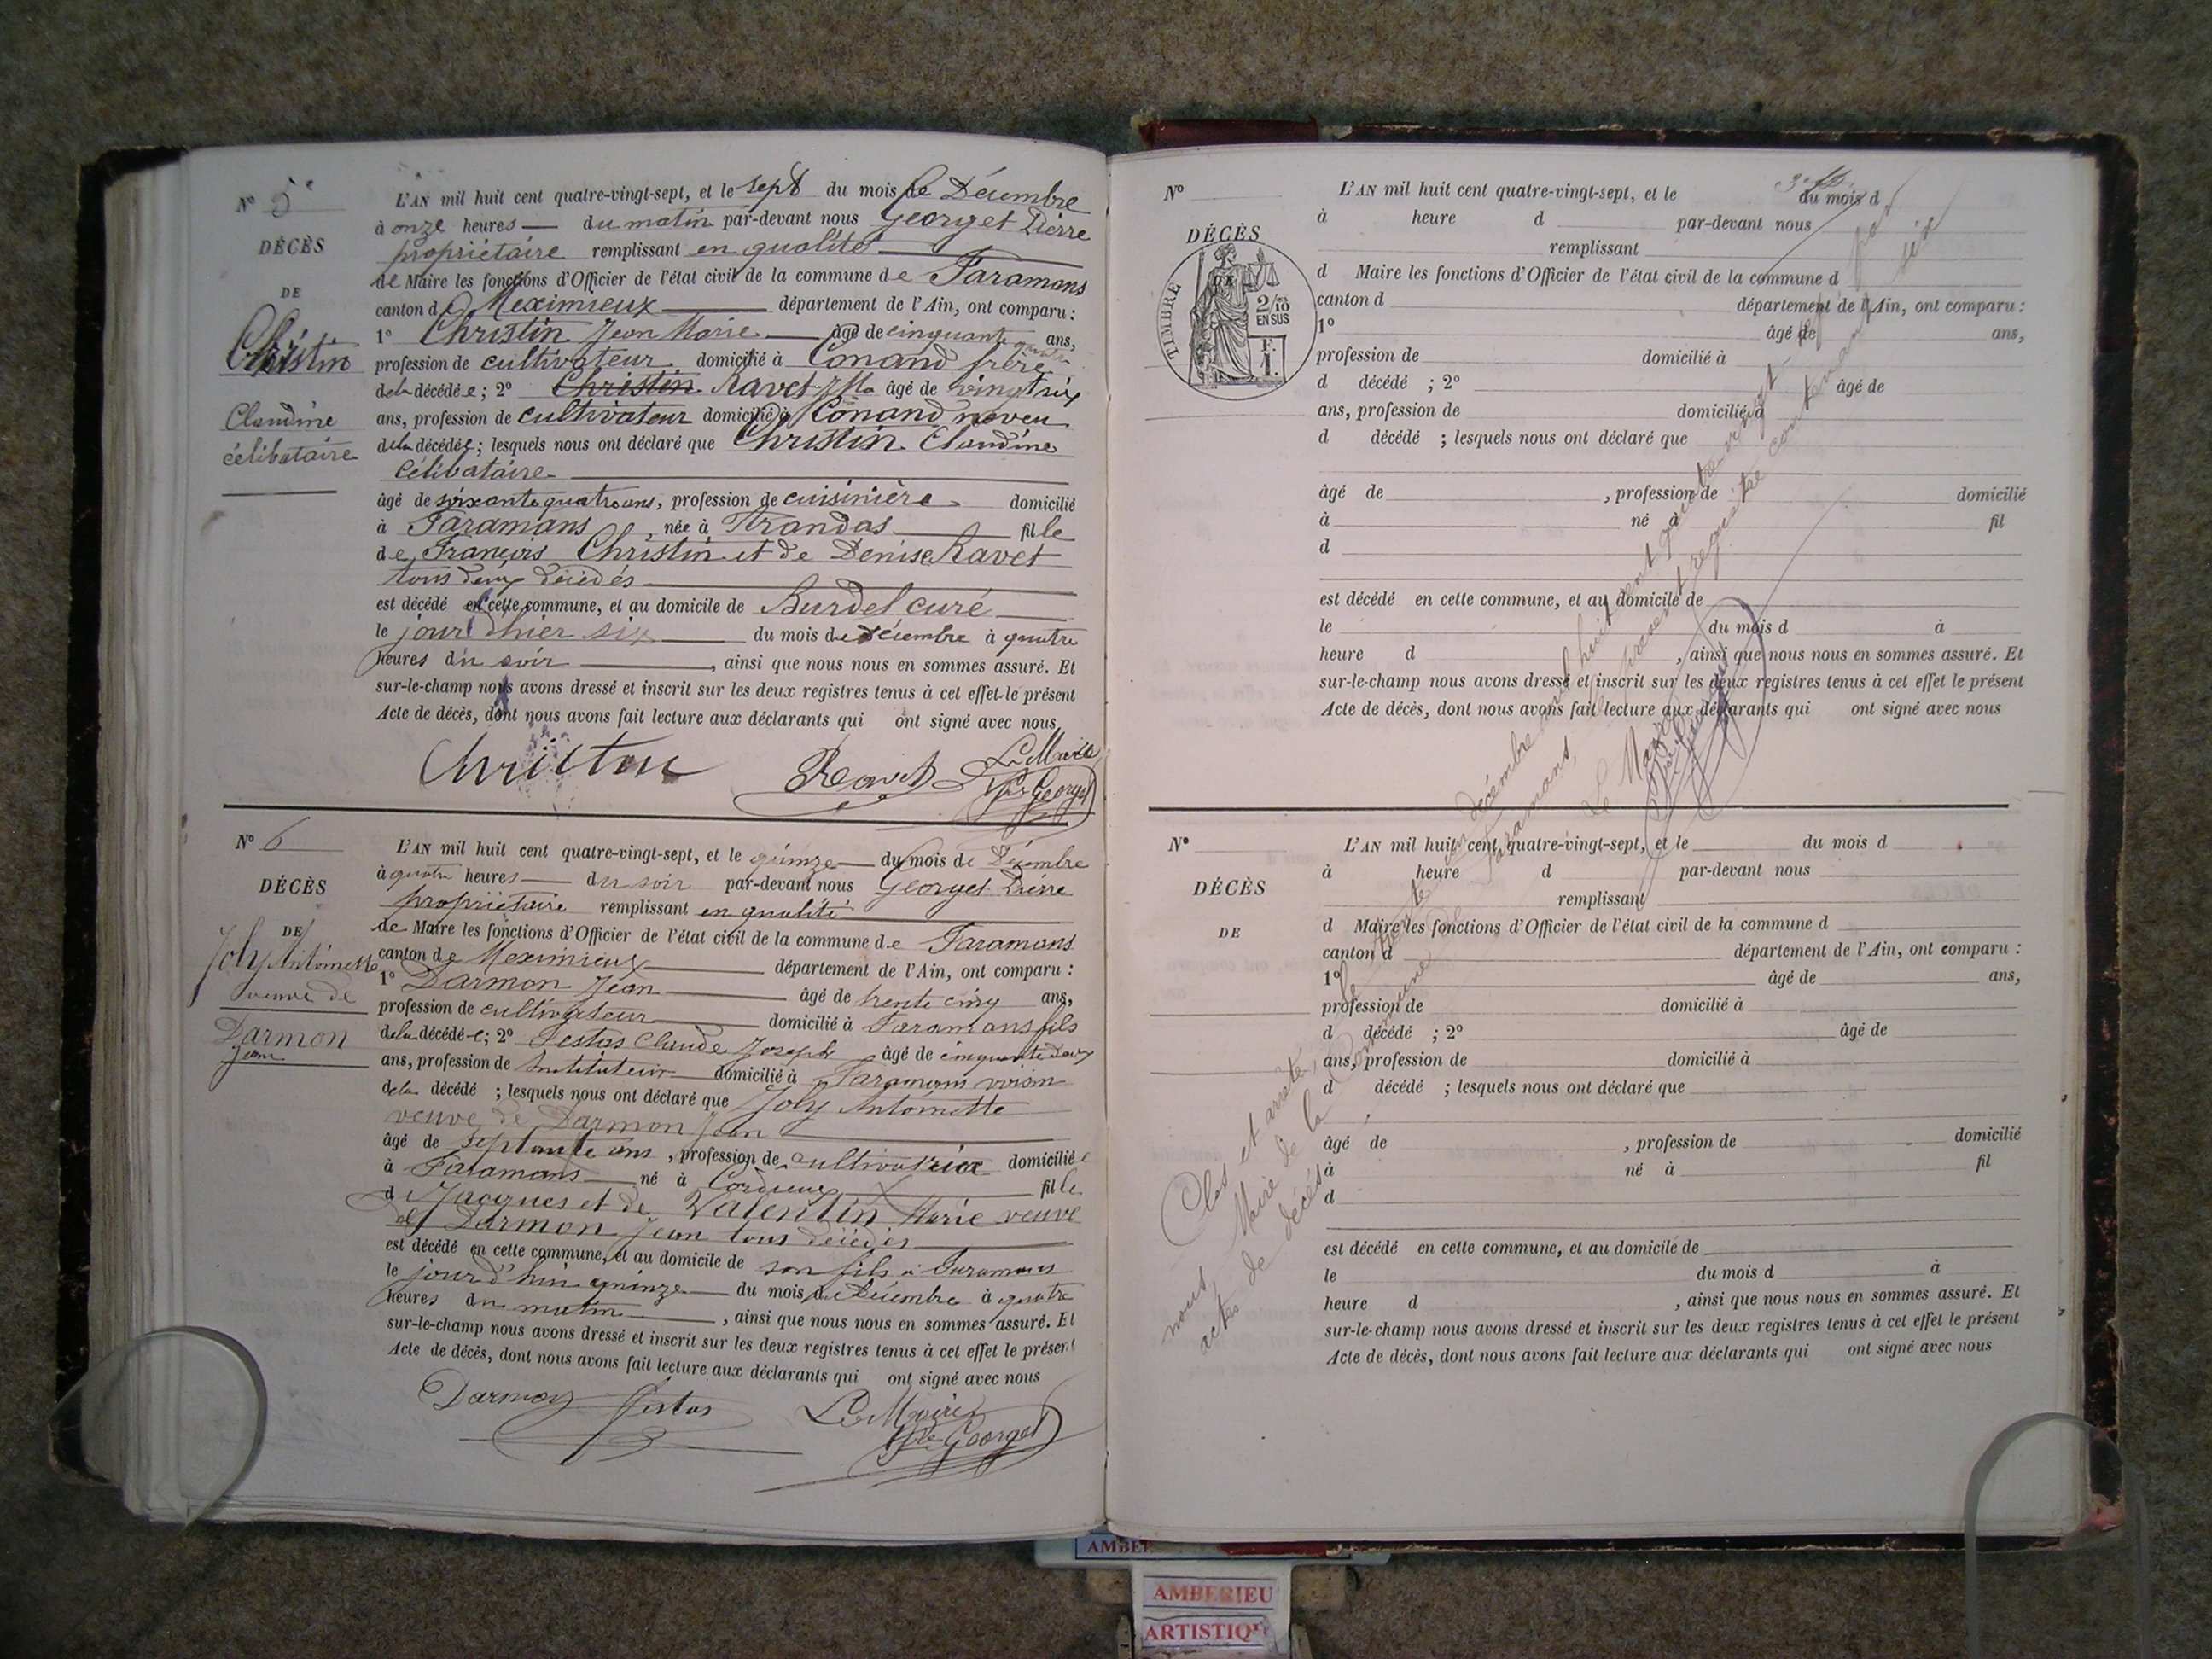 N° 5e
DÉCÈS
DE
Christin
Claudine
célibataire
L'AN mil huit cent quatre-vingt-sept, et le sept du mois de Décembre
à onze heures du matin par-devant nous Georget Pierre
propriétaire remplissant en qualité
de Maire les fonctions d'Officier de l'état civil de la commune de Faramans
canton de Meximieux département de l'Ain, ont comparu :
1° Christin Jean Marie âgé de cinquante quatre ans,
profession de cultivateur domicilié à Conand frère
de la décédée ; 2° Christin Ravet âgé de vingt six
ans, profession de cultivateur domicilié à Conand neveu
de la décédée ; lesquels nous ont déclaré que Christin Claudine
célibataire
âgé de soixante quatre ans, profession de cuisinière domicilié
à Faramans, née à Arandas fille
de François Christin et de Denise Ravet
tous deux décédés
est décédé en cette commune, et au domicile de Burdel curé
le jour d'hier six du mois de Décembre à quatre
heures du soir, ainsi que nous nous en sommes assuré. Et
sur-le-champ nous avons dressé et inscrit sur les deux registres tenus à cet effet le présent
Acte de décès, dont nous avons fait lecture aux déclarants qui ont signé avec nous
Christin Ravet Le Maire
Georget
N° 6
DÉCÈS
DE
Joly Antoinette
veuve de
Darmon
Jean
L'AN mil huit cent quatre-vingt-sept, et le quinze du mois de Décembre
à quatre heures du soir par-devant nous Georget Pierre
propriétaire remplissant en qualité
de Maire les fonctions d'Officier de l'état civil de la commune de Faramans
canton de Meximieux département de l'Ain, ont comparu :
1° Darmon Jean âgé de trente cinq ans,
profession de cultivateur domicilié à Faramans fils
de la décédée ; 2° Festas Claude Joseph âgé de cinquante deux
ans, profession de Instituteur domicilié à Faramans voisin
de la décédé ; lesquels nous ont déclaré que Joly Antoinette
veuve de Darmon Jean
âgé de septante ans, profession de cultivatrice domiciliée
à Faramans né à Cordieux fille
d Jacques et de Valentin Marie veuve
de Darmon Jean tous décédés
est décédé en cette commune, et au domicile de son fils à Faramans
le jour d'hui quinze du mois de Décembre à quatre
heures du matin, ainsi que nous nous en sommes assuré. Et
sur-le-champ nous avons dressé et inscrit sur les deux registres tenus à cet effet le présent
Acte de décès, dont nous avons fait lecture aux déclarants qui ont signé avec nous
Darmon Festas Le Maire
Georget
N°
DÉCÈS
TIMBRE
DE
2/10
EN SUS
F.
1.
L'AN mil huit cent quatre-vingt-sept, et le du mois d
à heure d par-devant nous
remplissant
d Maire les fonctions d'Officier de l'état civil de la commune d
canton d département de l'Ain, ont comparu :
1° âgé de ans,
profession de domicilié à
d décédé ; 2° âgé de
ans, profession de domicilié à
d décédé ; lesquels nous ont déclaré que
âgé de , profession de domicilié
à né à fil
d
est décédé en cette commune, et au domicile de
le du mois d à
heure d , ainsi que nous nous en sommes assuré. Et
sur-le-champ nous avons dressé et inscrit sur les deux registres tenus à cet effet le présent
Acte de décès, dont nous avons fait lecture aux déclarants qui ont signé avec nous
N°
DÉCÈS
DE
L'AN mil huit cent quatre-vingt-sept, et le du mois d
à heure d par-devant nous
remplissant
d Maire les fonctions d'Officier de l'état civil de la commune d
canton d département de l'Ain, ont comparu :
1° âgé de ans,
profession de domicilié à
d décédé ; 2° âgé de
ans, profession de domicilié à
d décédé ; lesquels nous ont déclaré que
âgé de , profession de domicilié
à né à fil
d
est décédé en cette commune, et au domicile de
le du mois d à
heure d , ainsi que nous nous en sommes assuré. Et
sur-le-champ nous avons dressé et inscrit sur les deux registres tenus à cet effet le présent
Acte de décès, dont nous avons fait lecture aux déclarants qui ont signé avec nous
Clos et arrêté, le trente un décembre mil huit cent quatre-vingt-sept par
nous, Maire de la Commune de Faramans, le présent registre contenant six
actes de décès
Le Maire
AMBERIEU
ARTISTIQU